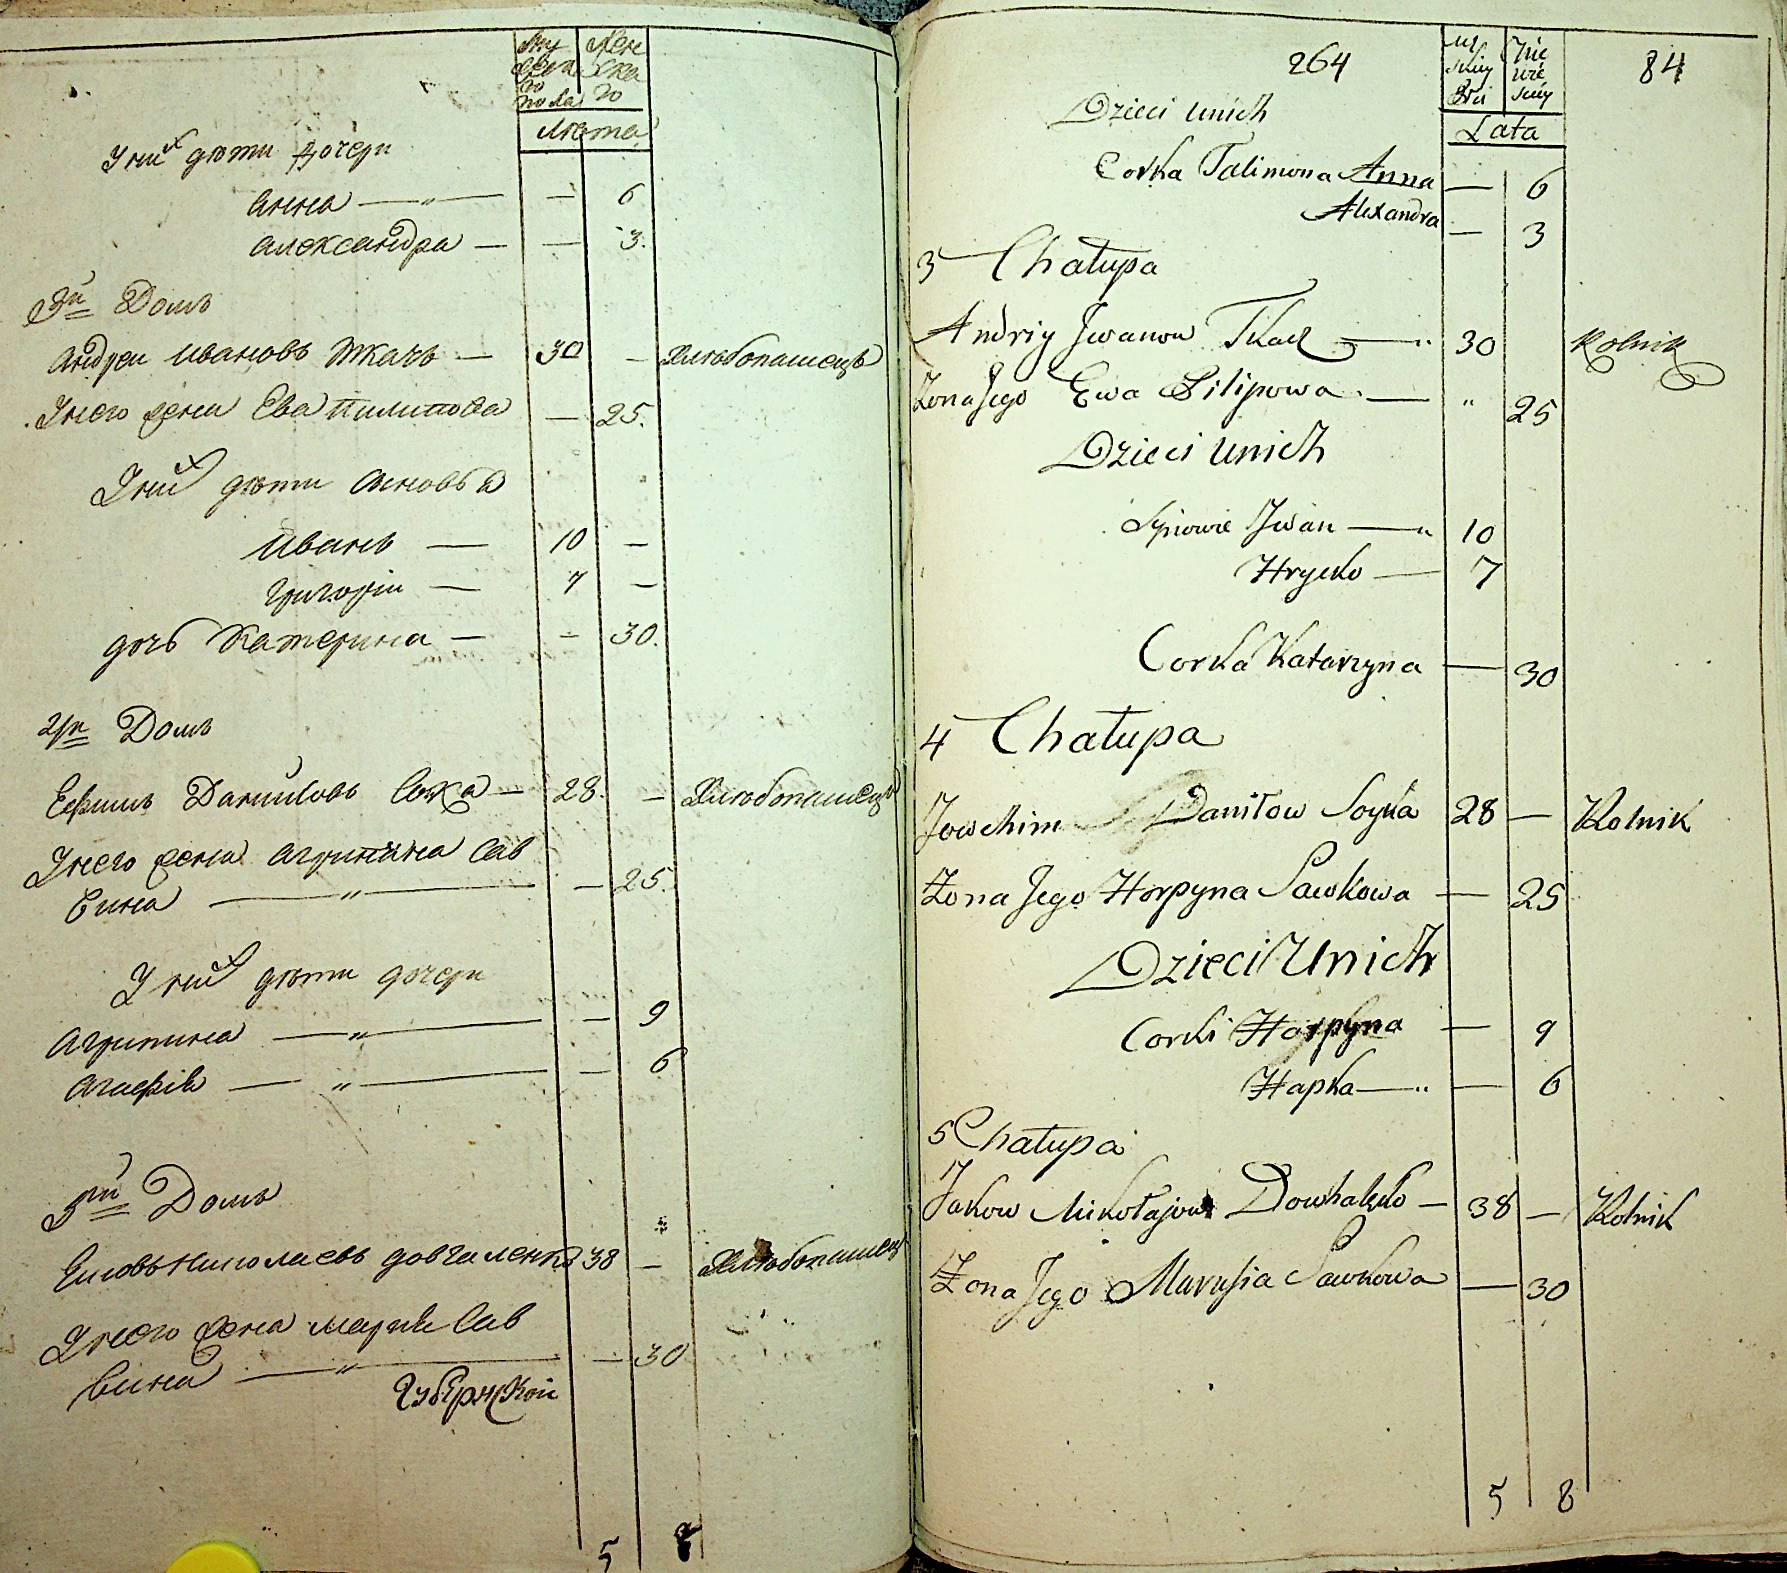 Му жеска го пола
Жен ска го
Лѣта
У них дѣти дочери
Анна — „ — — 6
Александра — — 3.
3й Домъ
Андреи Ивановъ Ткачъ — 30 — Хлѣбопашецъ
У него жена Ева Пилипова — 25.
У них дѣти сыновья
Иванъ — 10 —
Григорiи — 7 —
дочь Катерина — — 30.
4й Домъ
Ефимъ Даниловъ Сойка — 28. — Хлѣбопашецъ
У него жена Агрипина Сав
вина — „ — — 25.
У них дѣти дочери
Агрипина — „ — — 9
Агафiя — „ — — 6
5й Домъ
Яковъ Николаевъ Довгаленко 38 — Хлѣбопашецъ
У него жена Мария Сав
вина — „ — — 30
Губернской
5 8
264
84
Lata
Dzieci u nich
Corka Talimona Anna — 6
Alexandra — 3
3 Chałupa
Andriy Iwanow Tkacz — „ 30 Rolnik
Zona Jego Ewa Filipowa — „ 25
Dzieci u nich
Synowie Iwan — „ 10
Hryćko — 7
Corka Katarzyna — 30
4 Chałupa
Jowchim Daniłow Soyka 28 — Rolnik
Zona Jego Horpyna Sawkowa — 25
Dzieci U nich
Corki Horpyna — 9
Hapka — „ — 6
5 Chałupa
Jakow Mikołajow Dowhalenko — 38 — Rolnik
Zona Jego Marusia Sawkowa — 30
5 8